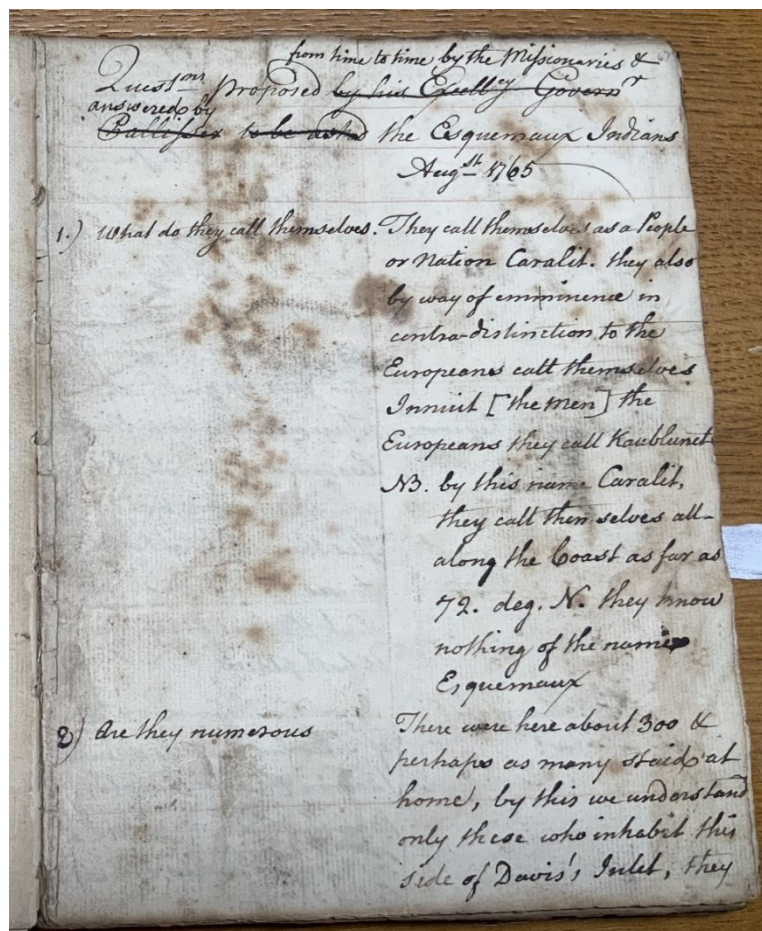 from time to time by the Missionaries &
Questns proposed by his Excellcy Governr
answered by
Pallisser to be asked the Esquemaux Indians
Augst 1765
1.) What do they call themselves. They call themselves as a People
or Nation Caralit. they also
by way of emminence in
contra-distinction to the
Europeans call themselves
Innuit [the Men] the
Europeans they call Kaublunet
NB. by this name Caralit,
they call themselves all-
along the Coast as far as
72. deg. N. they know
nothing of the name
Esquemaux
2) Are they numerous There were here about 300 &
perhaps as many staid at
home, by this we understand
only these who inhabit this
side of Davis's Inlet, they